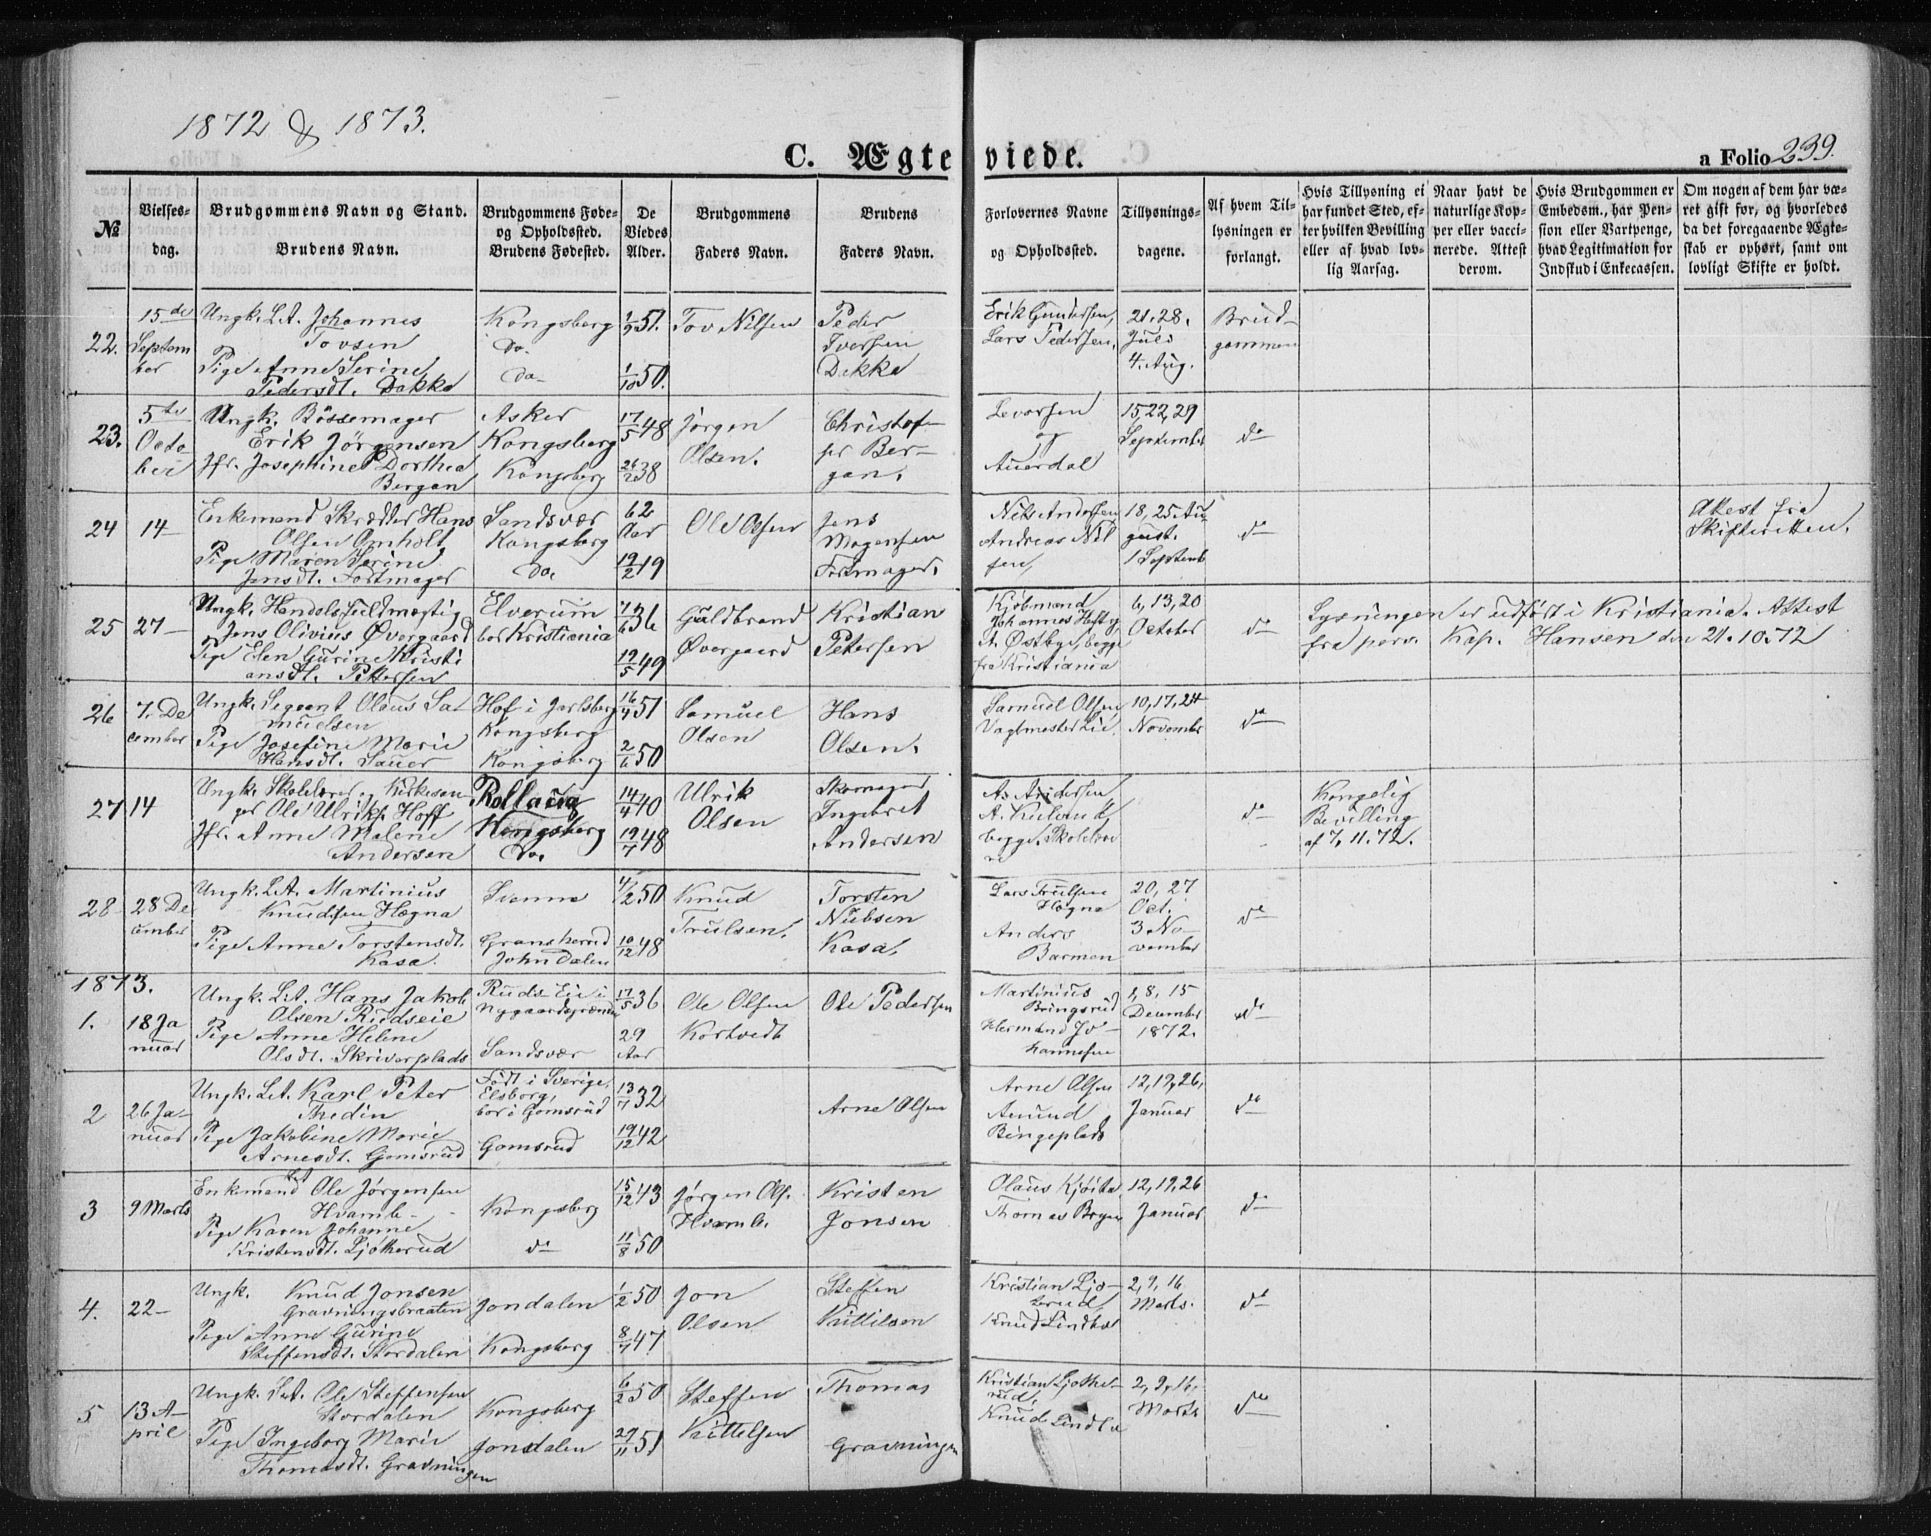 1872 & 1873.
C. Ægteviede.
a Folio 239.
№
Vielses-
dag.
Brudgommens Navn og Stand.
Brudens Navn.
Brudgommens Føde-
og Opholdssted.
Brudens Fødested.
De
Viedes
Alder.
Brudgommens
Faders Navn.
Brudens
Faders Navn.
Forlovernes Navne
og Opholdssted.
Tillysnings-
dagene.
Af hvem Til-
lysningen er
forlangt.
Hvis Tillysning ei
har fundet Sted, ef-
ter hvilken Bevilling
eller af hvad lov-
lig Aarsag.
Naar havt de
naturlige Kop-
per eller vacci-
nerede. Attest
derom.
Hvis Brudgommen er
Embedsm., har Pen-
sion eller Vartpenge,
hvad Legitimation for
Indskud i Enkecassen.
Om nogen af dem har væ-
ret gift før, og hvorledes
da det foregaaende Ægte-
skab er ophørt, samt om
lovligt Skifte er holdt.
22.
15de
Septem
ber
Ungk. L.A. Johannes
Tovsen
Pige Anne Serine
Pedersdt. Dakka
Kongsberg
Do.
Do.
1/9 51.
1/10 50.
Tov Nilsen
Peder
Iversen
Dekka
Erik Gundersen,
Lars Pedersen,
21. 28.
Juli
4. Aug.
Brud-
gommen
23.
5te
Octo-
ber
Ungk. Bössemager
Erik Jörgensen
Jfr. Josephine Dorthea
Bergan
Asker
Kongsberg
Kongsberg
17/5 48
26/2 38
Jörgen
Olsen.
Christof-
fer Ber-
gan.
Levorsen
og
Auerdal
15, 22, 29
September
do
24
14
Enkemand Skrædder Hans
Olsen Omholt
Pige Maren Serine
Jensdt. Fortmager
Sandsvær
Kongsberg
Do.
62
Aar
19/2 19
Ole Olsen
Jens
Mogensen
Fortmager.
Nils Andersen
Andreas Nil
sen,
18, 25 Au
gust.
1 Septemb
do
Attest fra
Skifteretten.
25
27
Ungk. Handels Fuldmægtig
Jens Olivius Øvergaard
Pige Elen Gurine Kristi
ansdt. Pettersen
Elverum
bor Kristiania
7/6 36
19/5 49
Guldbrand
Øvergaard
Kristian
Petersen
Kjøbmand
Johannes Hefty
A. Østbye, begge
fra Kristiania
6, 13, 20
October
do
Lysningen er udført i Kristiania. Attest
fra pers. Kap. Hansen den 21. 10. 72
26
7. De
cember
Ungk. Sergeant Olaus Sa-
muelsen
Pige Josefine Marie
Hansdt. Sauer
Hof i Jarlsberg
Kongsberg
Kongsberg
16/4 51
2/6 50
Samuel
Olsen
Hans
Olsen.
Samuel Olsen
Vagtmester Lie.
10, 17, 24
November
do
27
14
Ungk. Skolelærer og Kirkesan
ger Ole Ulriks. Hoff
Jfr. Anne Malene
Andersen
Rollaug
Kongsberg
Do.
14/4 40
19/7 48
Ulrik
Olsen
Skomager
Ingebret
Andersen
As. Andersen
A. Kieland
begge Skolelære
re
do
Kongelig
Bevilling
af 7. 11. 72.
28
28 De
cember
Ungk. L.A. Martinius
Knudsen Hægna
Pige Anne Torstensdt.
Kasa.
Svenne
Gransherred
John Dalen
4/2 50
10/12 48
Knud
Trulsen.
Torsten
Nubsen
Kasa.
Lars Trulsen
Hegna
Anders
Barmen
20, 27
Oct.
3 No-
vember
do
1873.
1.
18 Ja
nuar
Ungk. L.A. Hans Jakob
Olsen Rudseie
Pige Anne Helene
Olsdt. Skriverplads
Ruds Eie i
Nygaardsgrænden
Sandsvær
17/5 36
29
Aar
Ole Olsen
Kortvedt
Ole Pedersen
Martinius
Bringsrud
Herman Jo-
hannesen
1, 8, 15
December
1872.
do
2
26 Ja-
nuar
Ungk. L.A. Karl Peter
Thedin
Pige Jakobine Marie
Arnesdt. Gomsrud
Født i Sverige,
Elsborg,
bor i Gomsrud
Gomsrud
13/7 32
19/12 42
Arne Olsen
Arne Olsen
Amund
Bingeplads
12, 19, 26,
Januar
do
3
9 Marts
Enkemand L.A. Ole Jørgensen
Hvamb.
Pige Karen Johanne
Kristensdt. Ljøterud
Kongsberg
do
15/12 43
11/8 50
Jørgen Ols.
Hvamb.
Kristen
Jonsen
Olaus Kjøita
Thomas Bryn
12, 19, 26
Januar
do
4.
22
Ungk. Knud Jonsen
Gravningsbraaten
Pige Anne Gurine
Steffensdt. Stordalen
Jondalen
Kongsberg
1/2 50
8/7 47
Jon
Olsen
Steffen
Kittilsen
Kristian Ljø-
terud,
Knud Lindbæ
2, 9, 16
Marts.
do
5
13 A-
pril
Ungk. L.A. Ole Steffensen
Stordalen
Pige Ingeborg Marie
Thomasdt. Gravningen
Kongsberg
Jondalen
6/2 50
29/11 51
Steffen
Kittelsen
Thomas
Gravningen
Kristian Ljøthe-
rud,
Knud Lindbæ
2, 9, 16,
Marts
do